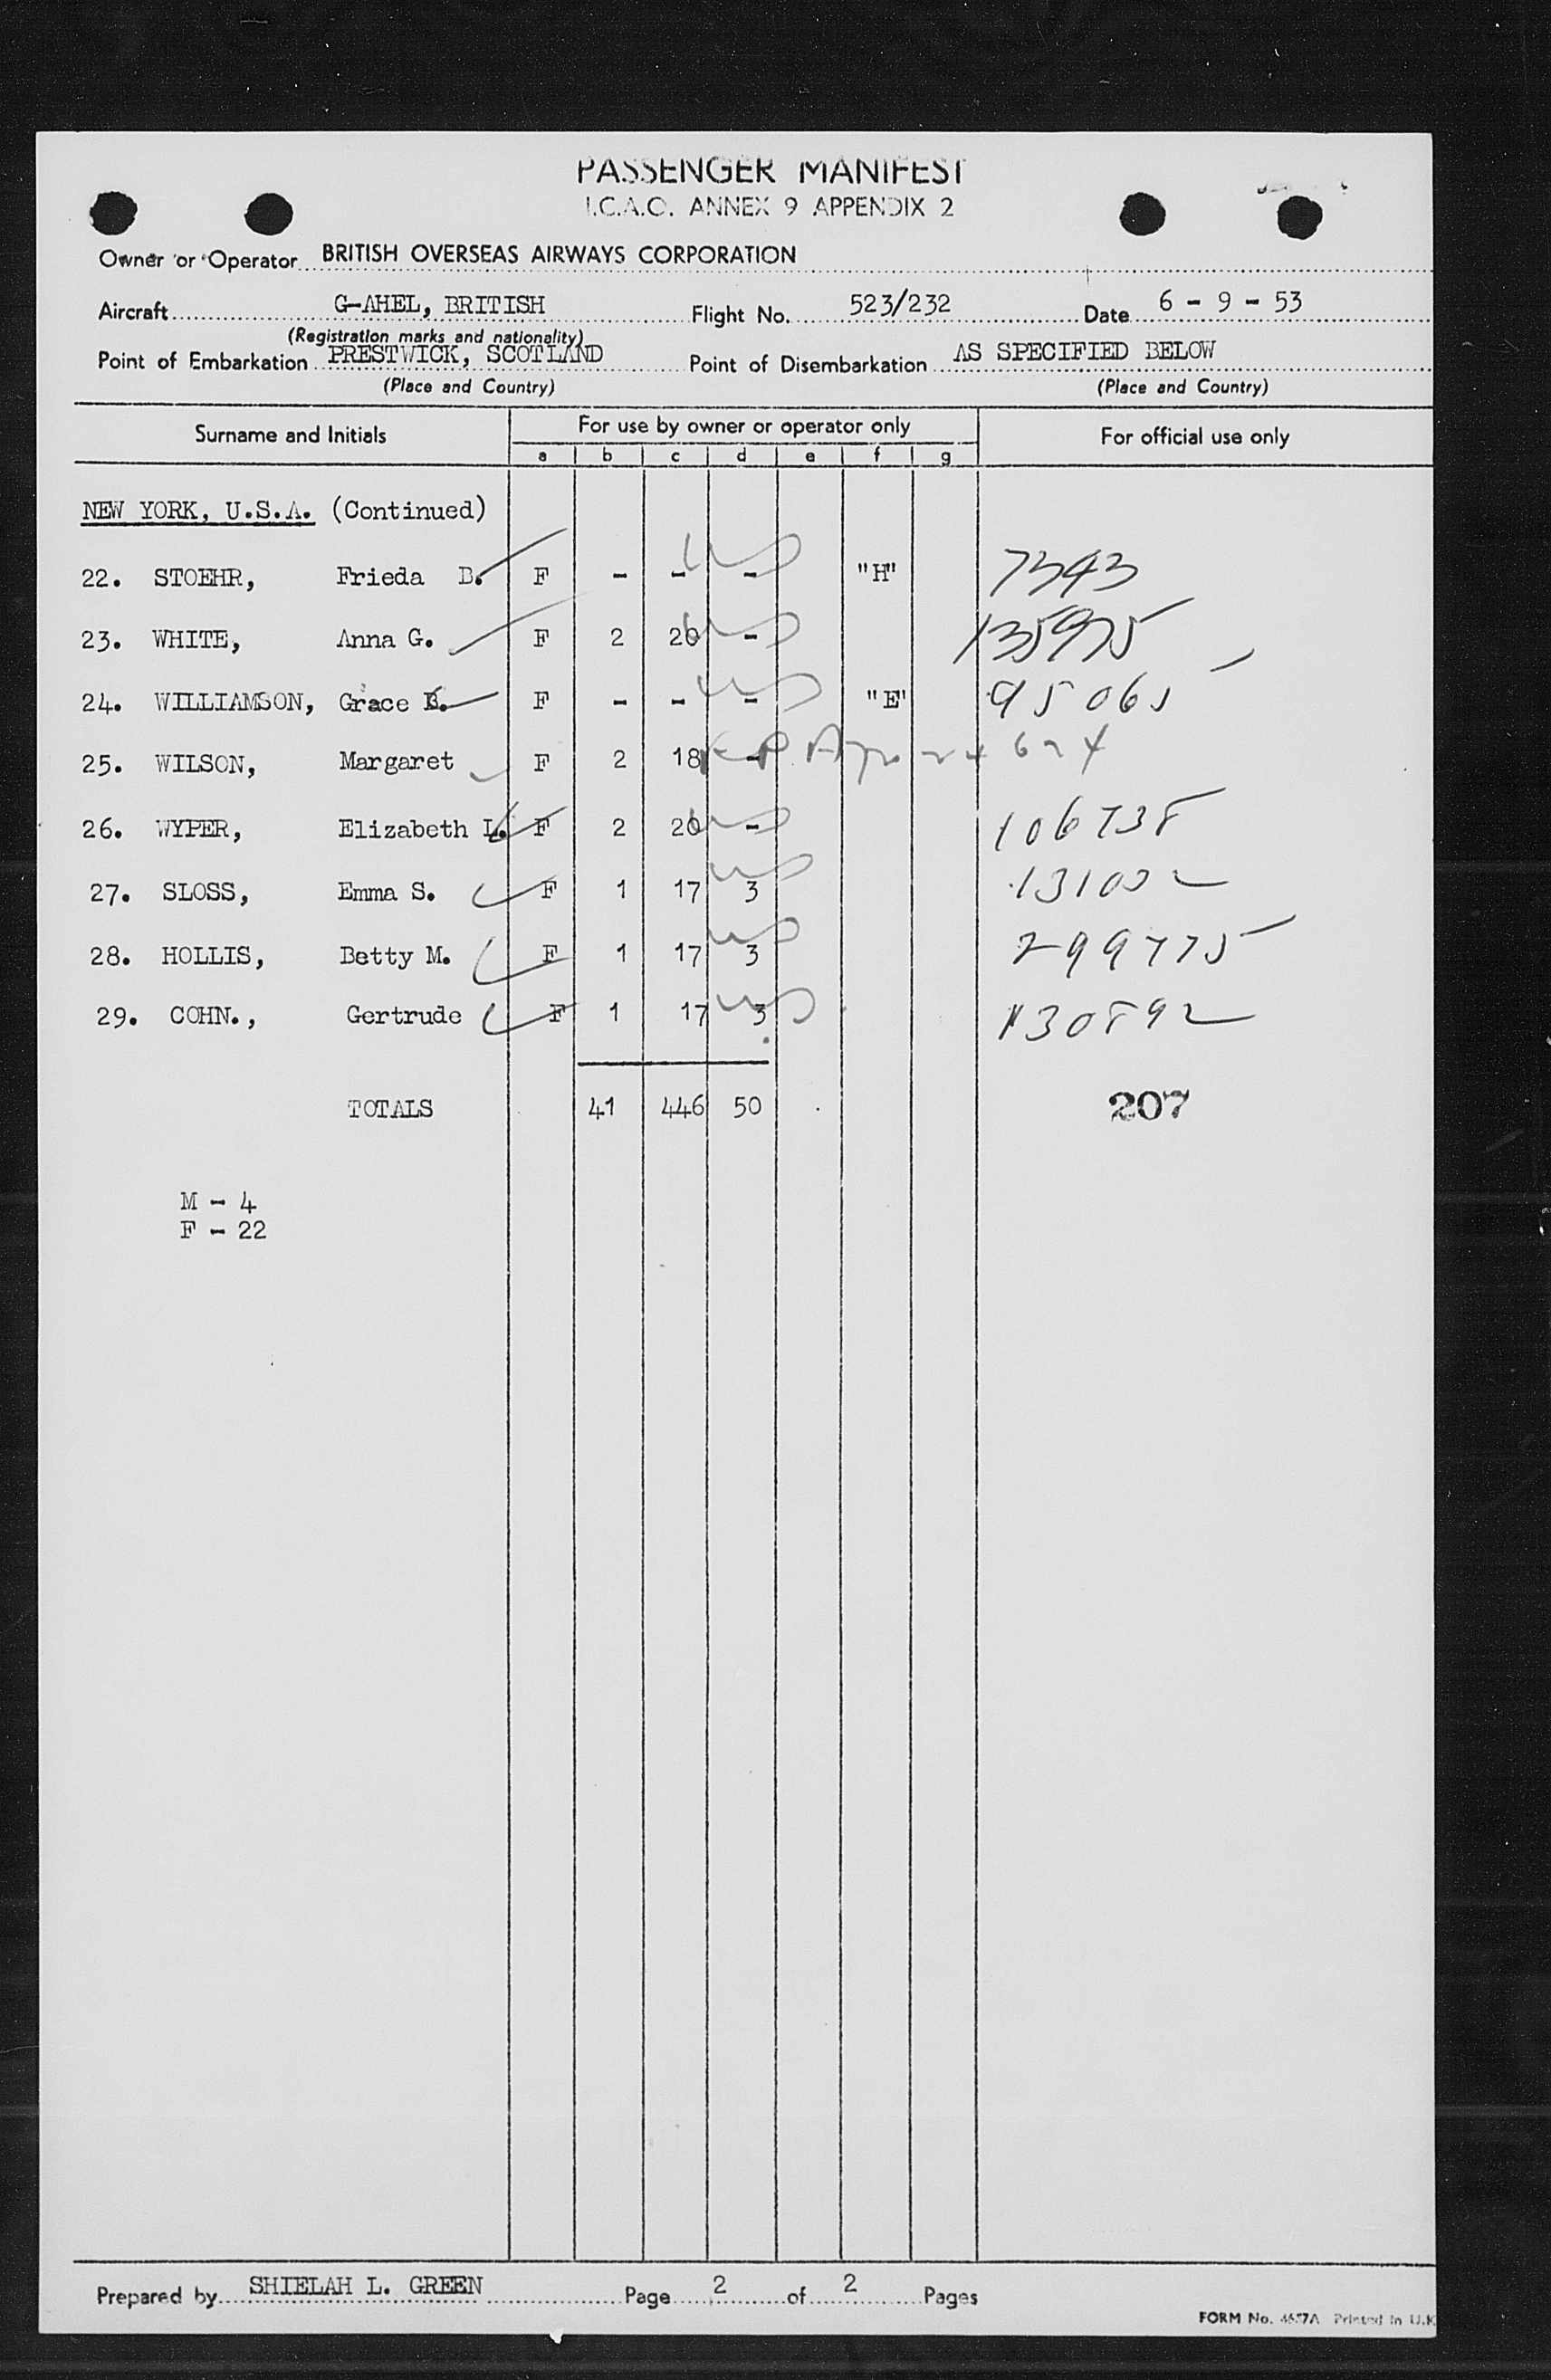 PASSENGER MANIFEST
I.C.A.O. ANNEX 9 APPENDIX 2
Owner or Operator BRITISH OVERSEAS AIRWAYS CORPORATION
Aircraft G-AHEL, BRITISH Flight No. 523/232 Date 6 - 9 - 53
(Registration marks and nationality)
Point of Embarkation PRESTWICK, SCOTLAND Point of Disembarkation AS SPECIFIED BELOW
(Place and Country) (Place and Country)
Surname and Initials For use by owner or operator only For official use only
a b c d e f g
NEW YORK, U.S.A. (Continued)
22. STOEHR, Frieda B. F - - - "H" 7343
23. WHITE, Anna G. F 2 20 - 135975
24. WILLIAMSON, Grace E. F - - - "E" 95065
25. WILSON, Margaret F 2 18 -
26. WYPER, Elizabeth L. F 2 20 - 106738
27. SLOSS, Emma S. F 1 17 3
28. HOLLIS, Betty M. F 1 17 3 299775
29. COHN., Gertrude F 1 17 3 130892
TOTALS 41 446 50 207
M - 4
F - 22
Prepared by SHIELAH L. GREEN Page 2 of 2 Pages
FORM No. Printed in U.K.